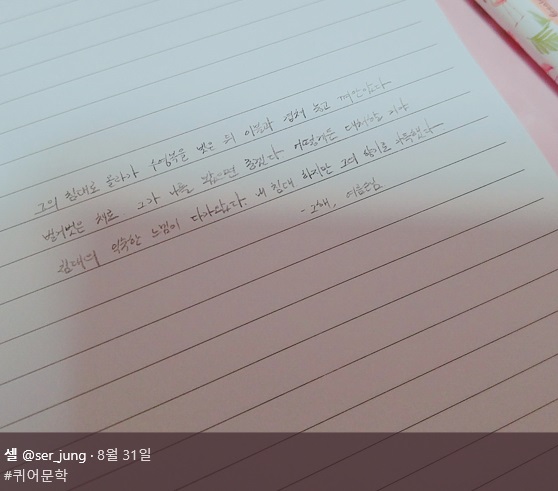 그의 침대로 올라가 수영복을 벗은 뒤 이불과 겹쳐 놓고 껴안았다
벌거벗은 채로 그가 나를 봤으면 좋겠다 어떻게든 대처할 거야
침대의 익숙한 느낌이 다가왔다. 내 침대 하지만 그의 향기로 가득했다
- 그해, 여름손님
셀 @ser_jung · 8월 31일
#퀴어문학